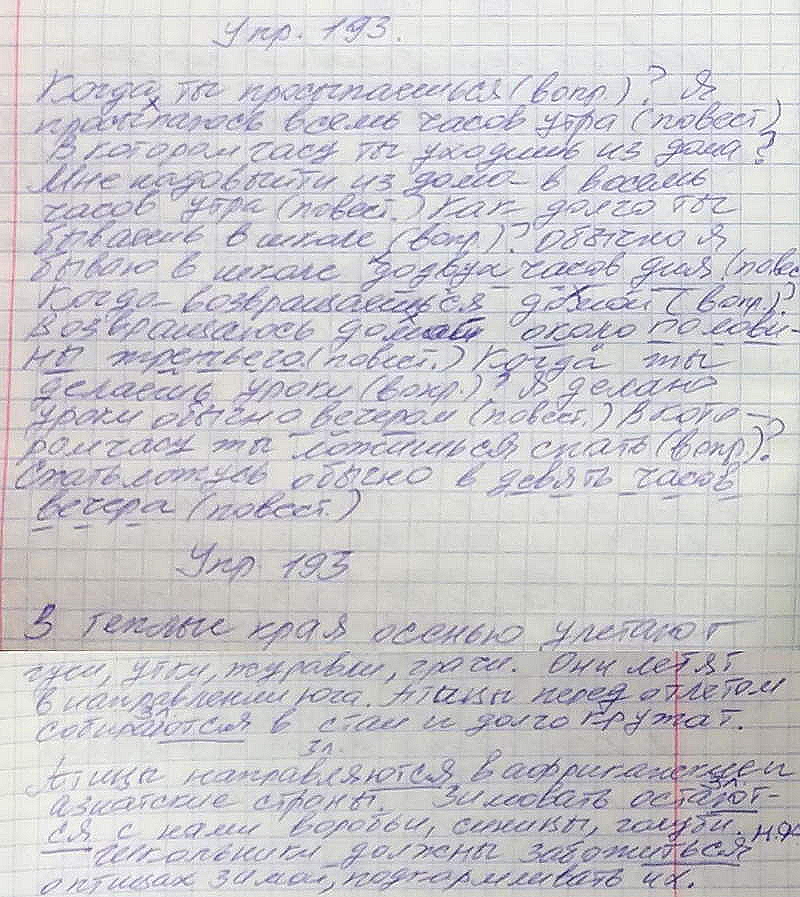 Упр. 193.
Когда ты просыпаешься (вопр.)? Я
просыпаюсь всемь часов утра (повест)
В котором часу ты уходишь из дома?
Мне надо выйти из дома в восемь
часов утра (повест.) Как долго ты
бываешь в школе (вопр.)? Обычно я
бываю в школе додвух часов дня (повес
Когда возвращаешься домой (вопр.)?
Возвращаюсь домой около полови-
ны третьего (повест.) Когда ты
делаешь уроки (вопр.)? Я делаю
уроки обычно вечером (повест.) В кото-
ром часу ты ложишься спать (вопр)?
Спать ложусь обычно в девять часов
вечера (повест.)
Упр 193
В теплые края осенью улетают
гуси, утки, журавли, грачи. Они летят
в направлении юга. Птицы перед отлетом
собираются в стаи и долго кружат.
3л.
Птицы направляются в африканские и
азиатские страны. Зимовать остают-
ся с нами воробьи, синицы, голуби.
Школьники должны заботиться
о птицах зимой, подкармливать их.